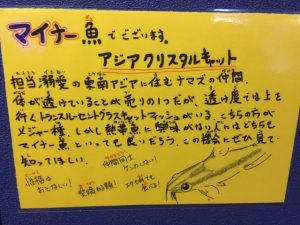 マイナー魚でございます。
アジアクリスタルキャット
担当溺愛の東南アジアに住むナマズの仲間。
体が透けていることが売りの1つだが、透け度では上を
行くトランスルーセントグラスキャットマッシュがいる。こちらの方が
メジャー種。しかし熱帯魚に興味がない人にはどちらも
マイナー魚といっても良いだろう。この機会にぜひ見て
知ってほしい。
性格は
おとなしい!
仲間同士
ケンカしない!
エサも何でも
食べる!